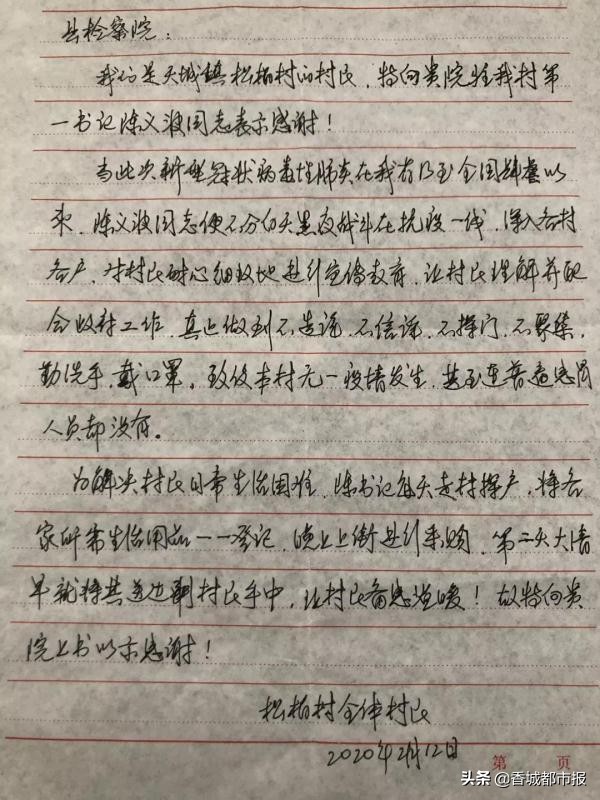 县检察院：
我们是天城镇松柏村的村民，特向贵院驻我村第
一书记陈义波同志表示感谢！
当此次新型冠状病毒性肺炎在我省乃至全国肆虐以
来，陈义波同志便不分白天黑夜战斗在抗疫一线，深入各村
各户，对村民耐心细致地进行宣传教育，让村民理解并配
合政府工作，真正做到不造谣、不信谣、不探门、不聚集，
勤洗手，戴口罩，致使本村无一疫情发生，甚至连普通感冒
人员都没有。
为解决村民日常生活困难，陈书记每天走村探户，将各
家所需生活用品一一登记，晚上上街进行采购，第二天大清
早就将其送达到村民手中，让村民备感温暖！故特向贵
院上书以示感谢！
松柏村全体村民
2020年2月12日
第 页
头条 @香城都市报